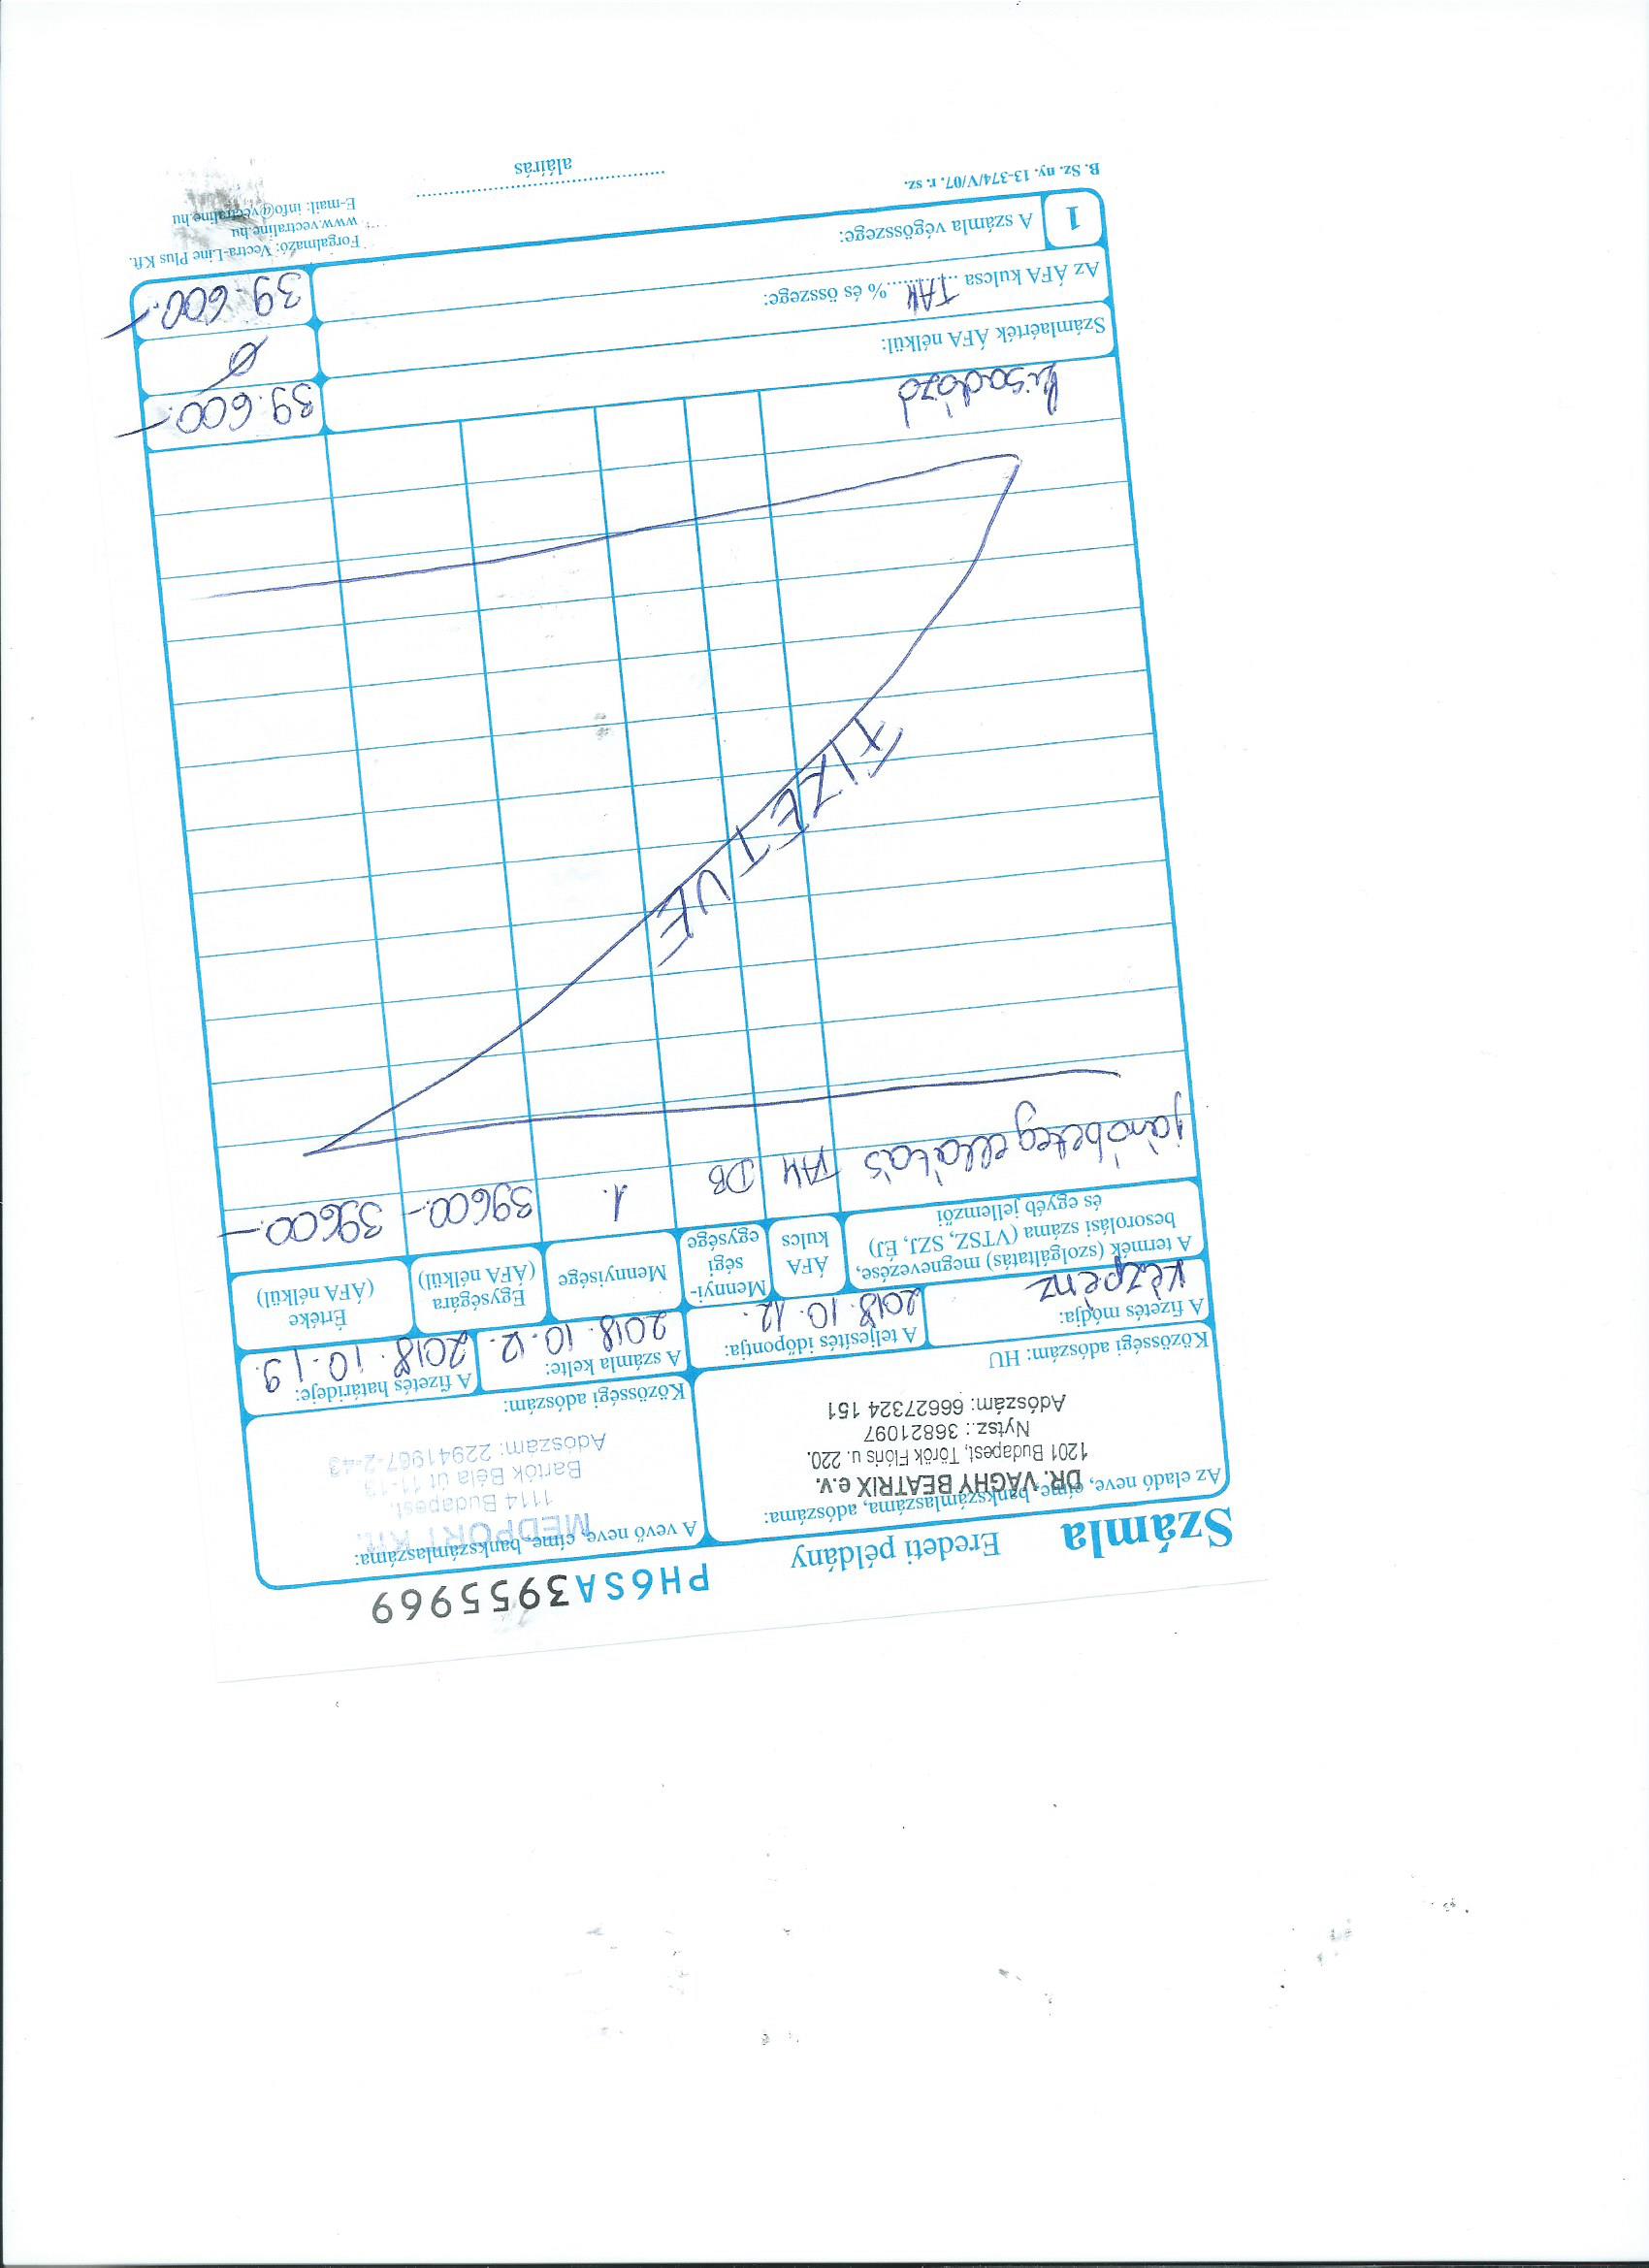 PH6SA3955969
Számla Eredeti példány
Az eladó neve, címe, bankszámlaszáma, adószáma:
DR. VÁGHY BEATRIX e.v.
1201 Budapest, Török Flóris u. 220.
Nytsz.: 36821097
Adószám: 66627324 151
Közösségi adószám: HU
A vevő neve, címe, bankszámlaszáma:
MEDPORT Kft.
1114 Budapest,
Bartók Béla út 11-13
Adószám: 22941967-2-43
Közösségi adószám:
A fizetés módja:
Készpénz
A teljesítés időpontja:
2018. 10. 12.
A számla kelte:
2018. 10. 12.
A fizetés határideje:
2018. 10. 19.
A termék (szolgáltatás) megnevezése,
besorolási száma (VTSZ, SZJ, ÉJ)
és egyéb jellemzői
ÁFA
kulcs
Mennyi-
ségi
egysége
Mennyisége
Egységára
(ÁFA nélkül)
Értéke
(ÁFA nélkül)
járóbeteg ellátás TAM DB 1. 39600.- 39600.-
FIZETVE
kisadózó
Számlaérték ÁFA nélkül: 39.600.-
Az ÁFA kulcsa ..TAM..% és összege: Ø
1 A számla végösszege: 39.600.-
B. Sz. ny. 13-374/V/07. r. sz.
aláírás
Forgalmazó: Vectra-Line Plus Kft.
www.vectraline.hu
E-mail: info@vectraline.hu